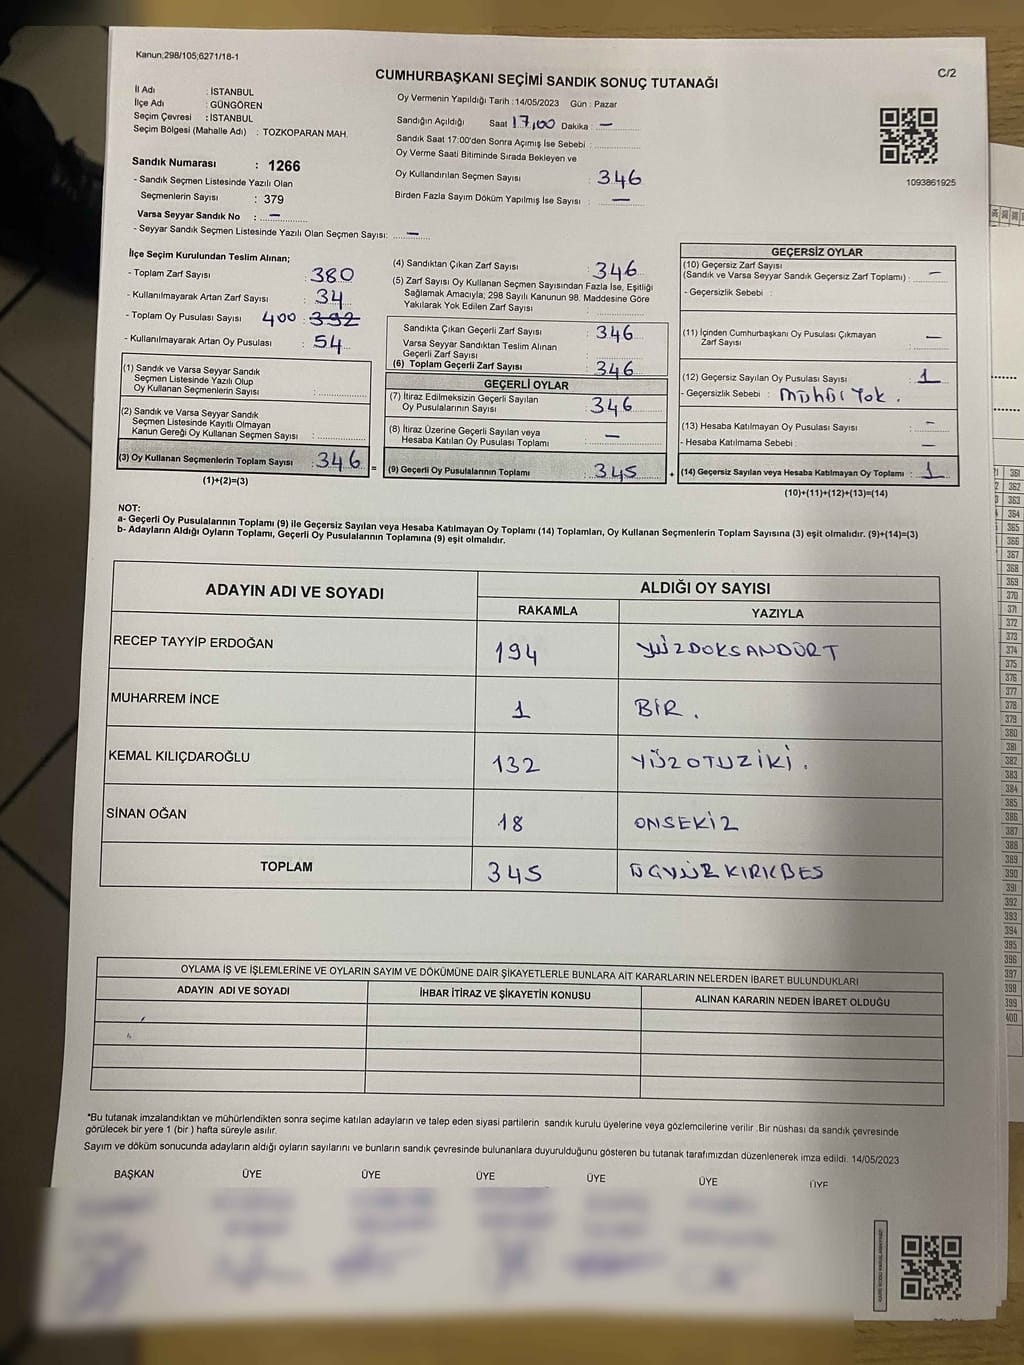 Kanun;298/105;6271/18-1
C/2
CUMHURBAŞKANI SEÇİMİ SANDIK SONUÇ TUTANAĞI
İl Adı : İSTANBUL
İlçe Adı : GÜNGÖREN
Seçim Çevresi : İSTANBUL
Seçim Bölgesi (Mahalle Adı) : TOZKOPARAN MAH.
Sandık Numarası : 1266
- Sandık Seçmen Listesinde Yazılı Olan
Seçmenlerin Sayısı : 379
Varsa Seyyar Sandık No : —
- Seyyar Sandık Seçmen Listesinde Yazılı Olan Seçmen Sayısı: —
Oy Vermenin Yapıldığı Tarih : 14/05/2023 Gün : Pazar
Sandığın Açıldığı Saat 17,00 Dakika : —
Sandık Saat 17:00'den Sonra Açımış İse Sebebi :
Oy Verme Saati Bitiminde Sırada Bekleyen ve
Oy Kullandırılan Seçmen Sayısı : 346
Birden Fazla Sayım Döküm Yapılmış İse Sayısı : —
1093861925
İlçe Seçim Kurulundan Teslim Alınan;
- Toplam Zarf Sayısı : 380
- Kullanılmayarak Artan Zarf Sayısı : 34
- Toplam Oy Pusulası Sayısı 400 : 392
- Kullanılmayarak Artan Oy Pusulası : 54
(1) Sandık ve Varsa Seyyar Sandık
Seçmen Listesinde Yazılı Olup
Oy Kullanan Seçmenlerin Sayısı :
(2) Sandık ve Varsa Seyyar Sandık
Seçmen Listesinde Kayıtlı Olmayan
Kanun Gereği Oy Kullanan Seçmen Sayısı :
(3) Oy Kullanan Seçmenlerin Toplam Sayısı : 346 =
(1)+(2)=(3)
(4) Sandıktan Çıkan Zarf Sayısı : 346
(5) Zarf Sayısı Oy Kullanan Seçmen Sayısından Fazla İse, Eşitliği
Sağlamak Amacıyla; 298 Sayılı Kanunun 98. Maddesine Göre
Yakılarak Yok Edilen Zarf Sayısı :
Sandıkta Çıkan Geçerli Zarf Sayısı : 346
Varsa Seyyar Sandıktan Teslim Alınan
Geçerli Zarf Sayısı :
(6) Toplam Geçerli Zarf Sayısı : 346
GEÇERLİ OYLAR
(7) İtiraz Edilmeksizin Geçerli Sayılan
Oy Pusulalarının Sayısı : 346
(8) İtiraz Üzerine Geçerli Sayılan veya
Hesaba Katılan Oy Pusulası Toplamı : —
(9) Geçerli Oy Pusulalarının Toplamı : 345 +
GEÇERSİZ OYLAR
(10) Geçersiz Zarf Sayısı
(Sandık ve Varsa Seyyar Sandık Geçersiz Zarf Toplamı) : —
- Geçersizlik Sebebi :
(11) İçinden Cumhurbaşkanı Oy Pusulası Çıkmayan
Zarf Sayısı : —
(12) Geçersiz Sayılan Oy Pusulası Sayısı : 1
- Geçersizlik Sebebi : Mühür Yok .
(13) Hesaba Katılmayan Oy Pusulası Sayısı : —
- Hesaba Katılmama Sebebi : —
(14) Geçersiz Sayılan veya Hesaba Katılmayan Oy Toplamı : 1
(10)+(11)+(12)+(13)=(14)
NOT:
a- Geçerli Oy Pusulalarının Toplamı (9) ile Geçersiz Sayılan veya Hesaba Katılmayan Oy Toplamı (14) Toplamları, Oy Kullanan Seçmenlerin Toplam Sayısına (3) eşit olmalıdır. (9)+(14)=(3)
b- Adayların Aldığı Oyların Toplamı, Geçerli Oy Pusulalarının Toplamına (9) eşit olmalıdır.
ADAYIN ADI VE SOYADI ALDIĞI OY SAYISI
RAKAMLA YAZIYLA
RECEP TAYYİP ERDOĞAN 194 YÜZDOKSANDÖRT
MUHARREM İNCE 1 BİR .
KEMAL KILIÇDAROĞLU 132 YÜZOTUZİKİ .
SİNAN OĞAN 18 ONSEKİZ
TOPLAM 345 ÜÇYÜZKIRKBES
OYLAMA İŞ VE İŞLEMLERİNE VE OYLARIN SAYIM VE DÖKÜMÜNE DAİR ŞİKAYETLERLE BUNLARA AİT KARARLARIN NELERDEN İBARET BULUNDUKLARI
ADAYIN ADI VE SOYADI İHBAR İTİRAZ VE ŞİKAYETİN KONUSU ALINAN KARARIN NEDEN İBARET OLDUĞU
*Bu tutanak imzalandıktan ve mühürlendikten sonra seçime katılan adayların ve talep eden siyasi partilerin sandık kurulu üyelerine veya gözlemcilerine verilir .Bir nüshası da sandık çevresinde
görülecek bir yere 1 (bir ) hafta süreyle asılır.
Sayım ve döküm sonucunda adayların aldığı oyların sayılarını ve bunların sandık çevresinde bulunanlara duyurulduğunu gösteren bu tutanak tarafımızdan düzenlenerek imza edildi. 14/05/2023
BAŞKAN ÜYE ÜYE ÜYE ÜYE ÜYE ÜYE
361
362
363
364
365
366
367
368
369
370
371
372
373
374
375
376
377
378
379
380
381
382
383
384
385
386
387
388
389
390
391
392
393
394
395
396
397
398
399
400